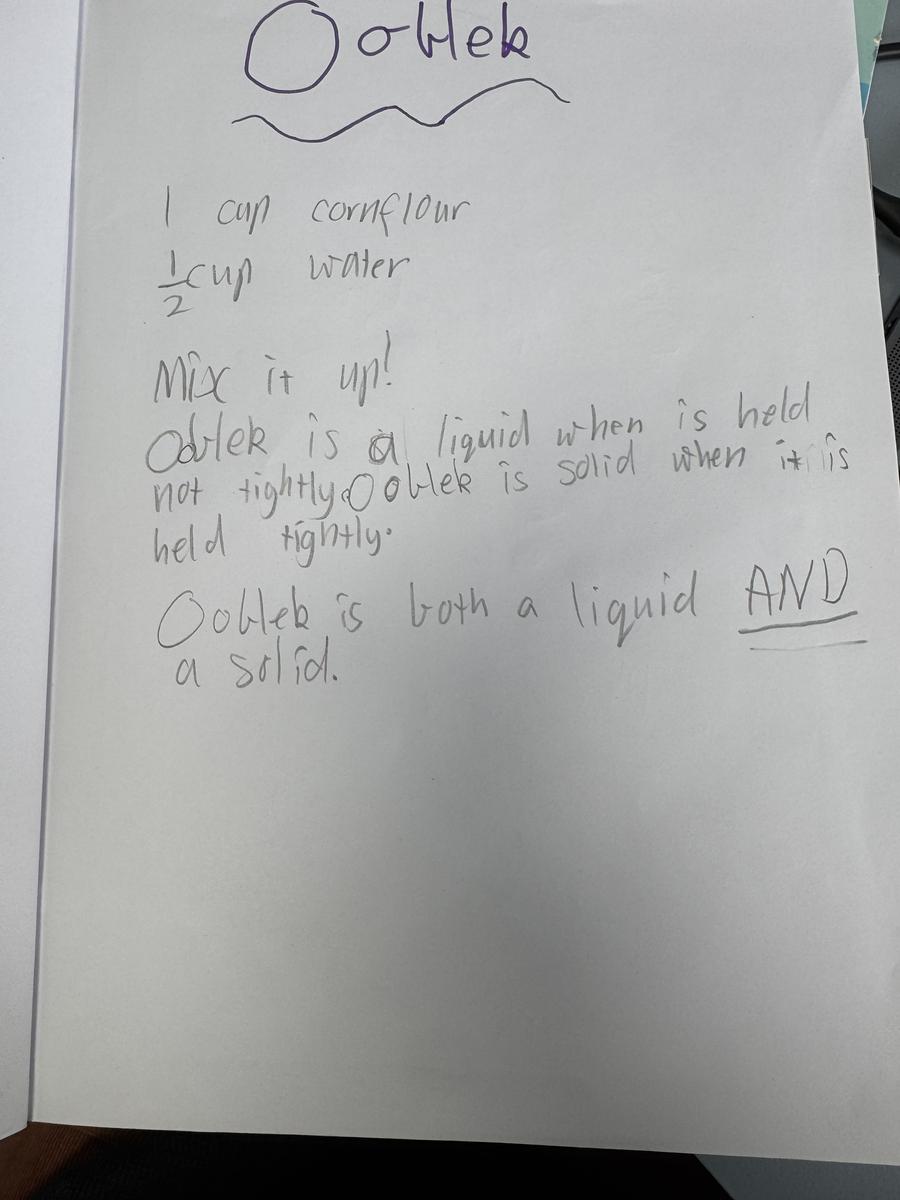 Ooblek
1 cup cornflour
1/2 cup water
Mix it up!
Ooblek is a liquid when is held
not tightly. Ooblek is solid when it is
held tightly.
Ooblek is both a liquid AND
a solid.